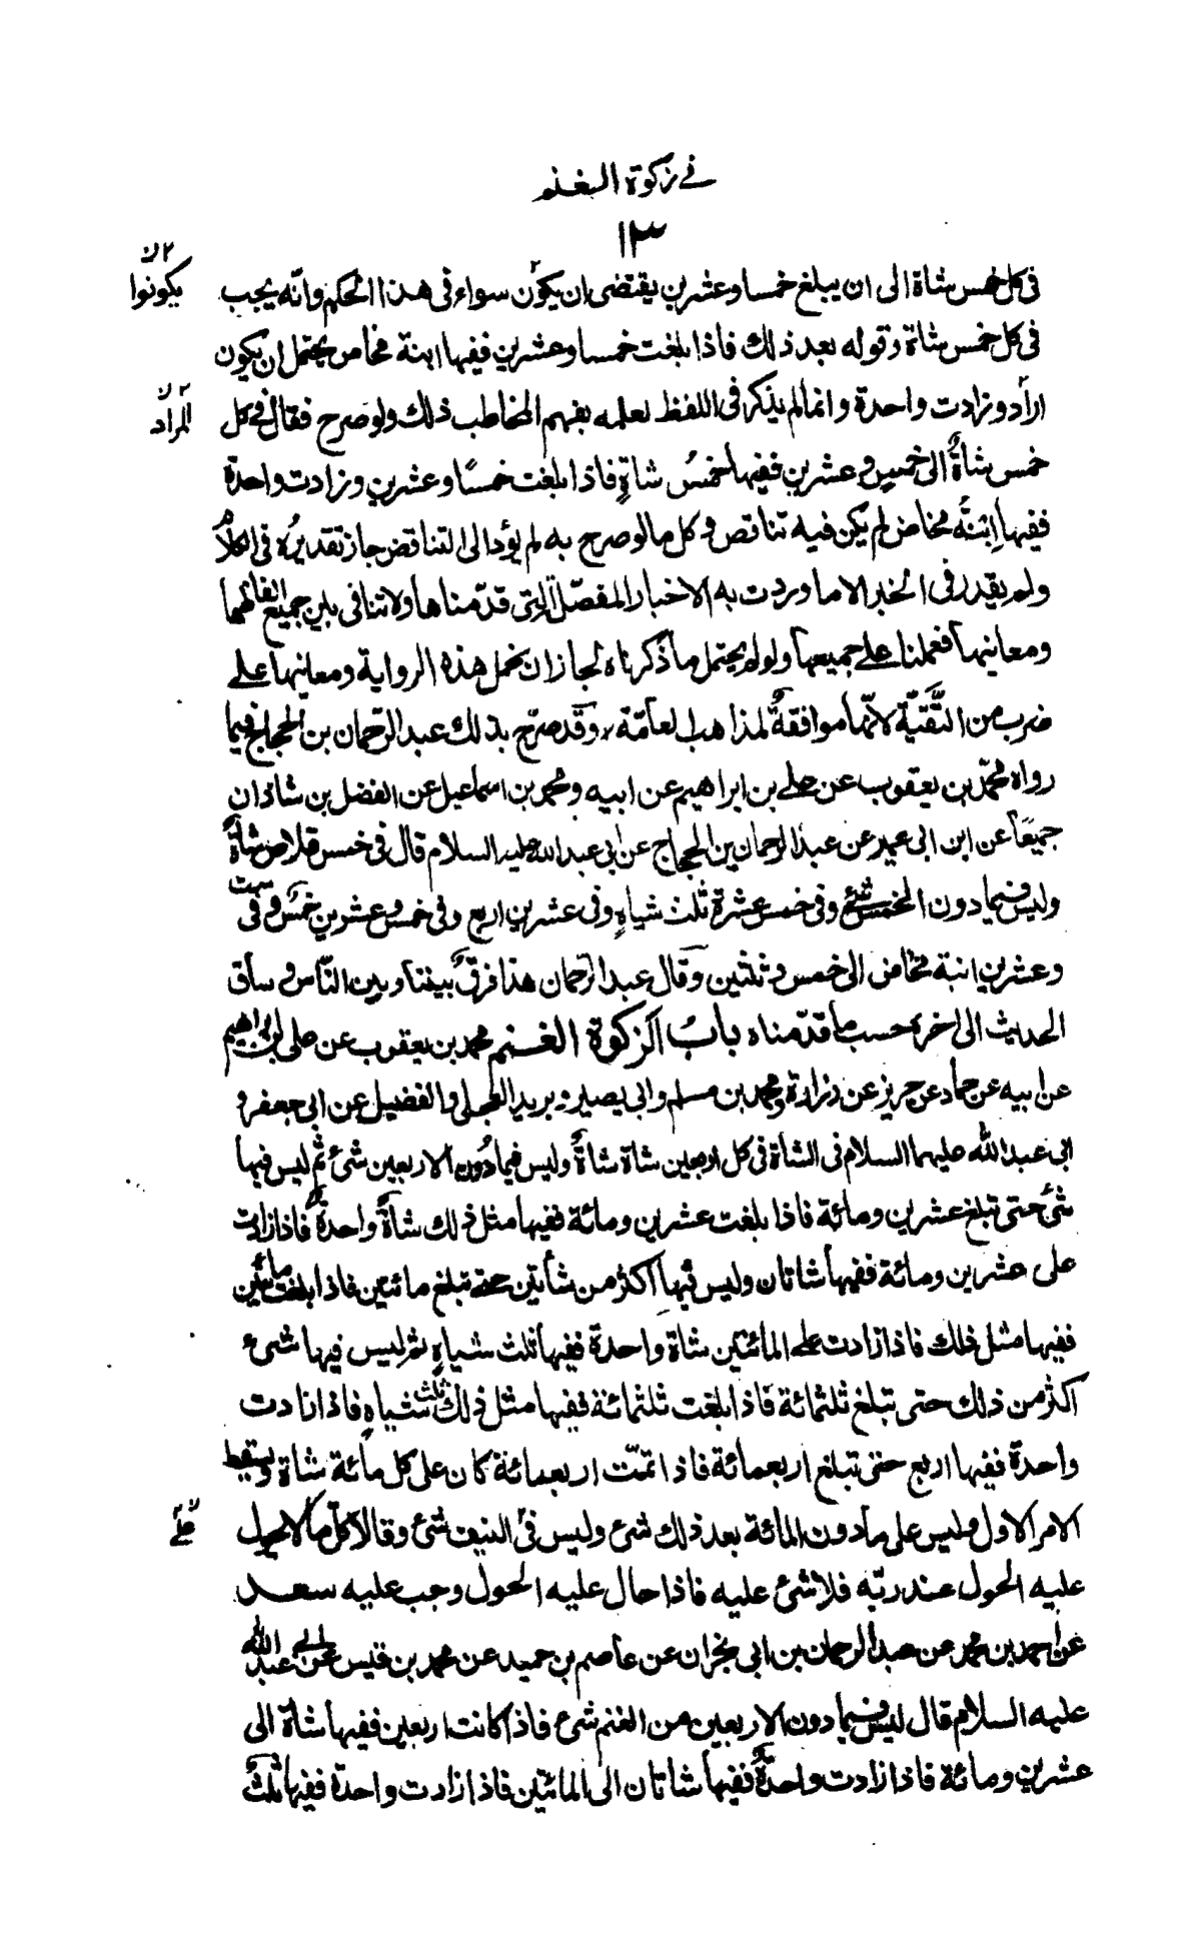 في زكوة الغنم
١٣
فى كل خمس شاة الى ان يبلغ خمسا وعشرين يقتضى ان يكون سواء فى هذا الحكم وانّه يجب
يكونوا
فى كل خمس شاة وقوله بعد ذلك فاذا بلغت خمسا وعشرين ففيها ابنة مخاض يحتمل ان يكون
اراد وزادت واحدة وانما لم يذكر فى اللفظ لعلمه بفهم المخاطب ذلك ولو صرح فقال فى كل
المراد
خمس شاةٌ الى خمس وعشرين ففيها خمسُ شاةٍ فاذا بلغت خمسًا وعشرين وزادت واحدة
ففيها ابنةُ مخاض لم يكن فيه تناقض وكل ما لو صرح به لم يؤد الى التناقض جاز تقديره فى الكلام
ولم يقدر فى الخبر الا ما وردت به الاخبار المفصّلة التى قدّمناها ولا تنافى بين جميع الفاظها
ومعانيها فعملنا على جميعها ولو لم يحتمل ما ذكرناه لجاز ان نحمل هذه الرواية ومعانيها على
ضرب من التَّقيّة لانّها موافقةٌ لمذاهب العامّة وقد صرّح بذلك عبد الرّحمان بن الحجاج فيما
رواه محمّد بن يعقوب عن على بن ابراهيم عن ابيه ومحمد بن اسماعيل عن الفضل بن شاذان
جميعًا عن ابن ابى عمير عن عبد الرحمان بن الحجاج عن ابى عبد الله عليه السلام قال فى خمس قلاص شاةٌ
وليس فيما دون الخمس شئ وفى خمس عشرة ثلث شياهٍ وفى عشرين اربع وفى خمس وعشرين خمسٌ وفى ست
وعشرين ابنة مخاض الى خمس وثلثين وقال عبد الرحمان هذا فرقٌ بيننا وبين النّاس وساق
الحديث الى اخره حسب ما قدّمناه بابُ الزكوة الغنم محمد بن يعقوب عن على بن ابراهيم
عن ابيه عن حماد عن حريز عن زرارة ومحمد بن مسلم وابى بصير وبريد العجلى والفضيل عن ابى جعفر و
ابى عبد الله عليهما السلام فى الشاة فى كل اربعين شاة شاةٌ وليس فيما دُون الاربعين شئ ثم ليس فيها
شئ حتى تبلغ عشرين ومائة فاذا بلغت عشرين ومائة ففيها مثل ذلك شاةٌ واحدةٌ فاذا زادت
على عشرين ومائة ففيها شاتان وليس فيها اكثر من شاتين حتى تبلغ مائتين فاذا بلغت مائتين
ففيها مثل ذلك فاذا زادت على المائتين شاة واحدة ففيها ثلث شياهٍ ثم ليس فيها شئ
اكثر من ذلك حتى تبلغ ثلثمائة فاذا بلغت ثلثمائة ففيها مثل ذلك ثلث شياهٍ فاذا زادت
واحدة ففيها اربع حتى تبلغ اربعمائة فاذا تمّت اربعمائة كان على كل مائة شاة ويسقط
الامر الاول وليس على ما دون المائة بعد ذلك شئ وليس فى النيف شئ وقالا كل ما لا يحول
على
عليه الحول عند ربّه فلا شئ عليه فاذا حال عليه الحول وجب عليه سعد
عن احمد بن محمد عن عبد الرحمان بن ابى نجران عن عاصم بن حميد عن محمد بن قيس عن ابى عبد الله
عليه السلام قال ليس فيما دون الاربعين من الغنم شئ فاذا كانت اربعين ففيها شاة الى
عشرين ومائة فاذا زادت واحدةٌ ففيها شاتان الى المائتين فاذا زادت واحدة ففيها ثلثٌ